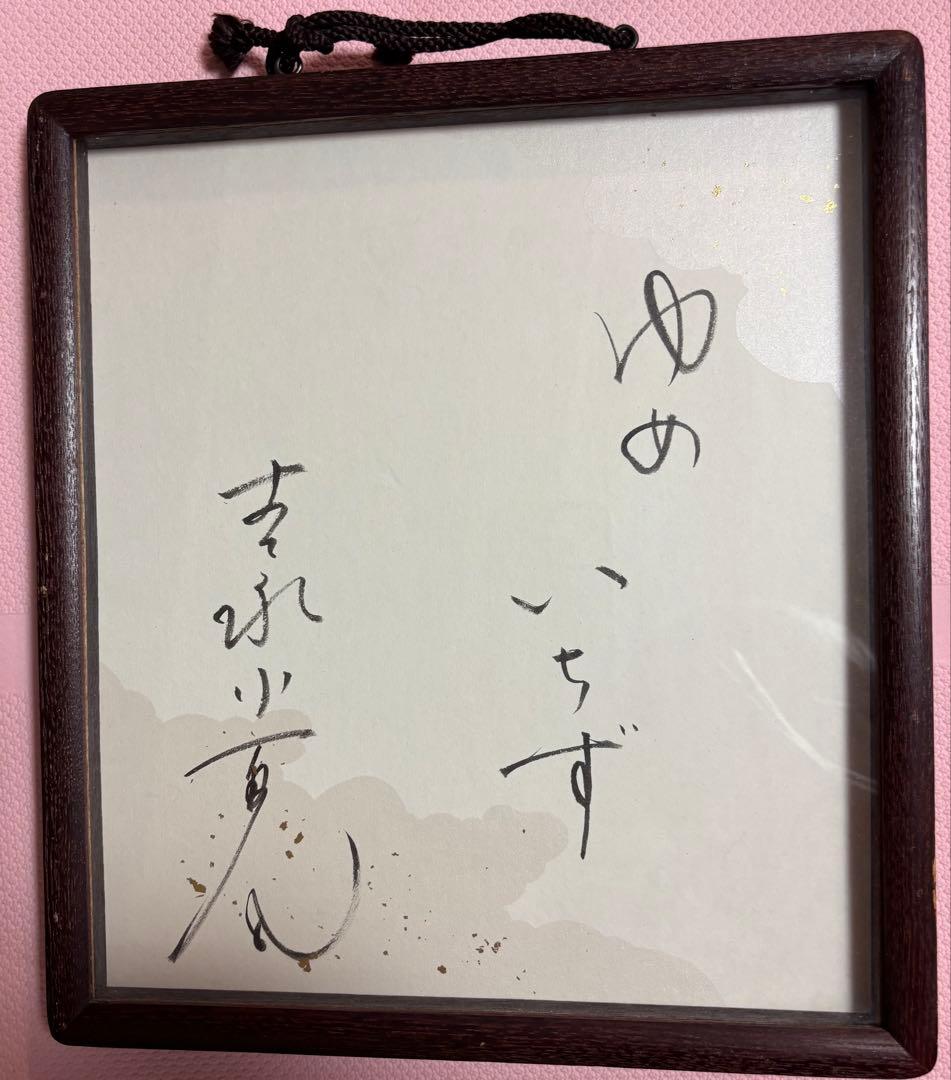 ゆめ
いちず
吉永小百合